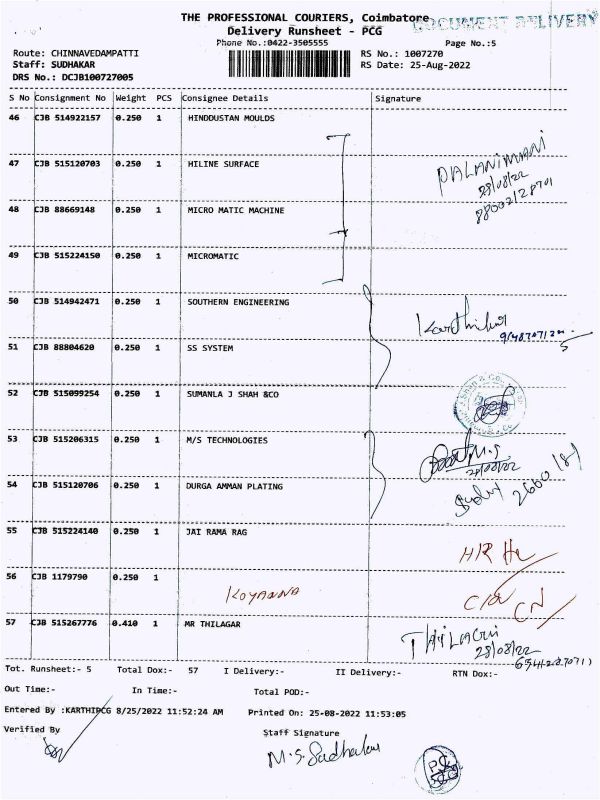 THE PROFESSIONAL COURIERS, Coimbatore
DOCUMENT DELIVERY
Delivery Runsheet - PCG
Phone No.:0422-3505555
Page No.:5
Route: CHINNAVEDAMPATTI
RS No.: 1007270
Staff: SUDHAKAR
RS Date: 25-Aug-2022
DRS No.: DCJB100727005
S No Consignment No Weight PCS Consignee Details Signature
46 CJB 514922157 0.250 1 HINDDUSTAN MOULDS
47 CJB 515120703 0.250 1 HILINE SURFACE
PALANIMANI
48 CJB 88669148 0.250 1 MICRO MATIC MACHINE
49 CJB 515224150 0.250 1 MICROMATIC
50 CJB 514942471 0.250 1 SOUTHERN ENGINEERING
51 CJB 88804620 0.250 1 SS SYSTEM
52 CJB 515099254 0.250 1 SUMANLA J SHAH &CO
53 CJB 515206315 0.250 1 M/S TECHNOLOGIES
54 CJB 515120706 0.250 1 DURGA AMMAN PLATING
55 CJB 515224140 0.250 1 JAI RAMA RAG
56 CJB 1179790 0.250 1
KOYANNA
57 CJB 515267776 0.410 1 MR THILAGAR
28/08/22
Tot. Runsheet:- 5 Total Dox:- 57 I Delivery:- II Delivery:- RTN Dox:-
Out Time:- In Time:- Total POD:-
Entered By :KARTHIPCG 8/25/2022 11:52:24 AM Printed On: 25-08-2022 11:53:05
Verified By Staff Signature
M.S. Sudhakar